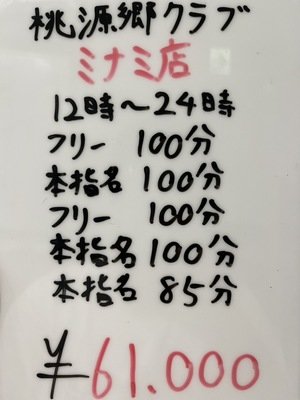 桃源郷クラブ
ミナミ店
12時〜24時
フリー 100分
本指名 100分
フリー 100分
本指名 100分
本指名 85分
¥61.000